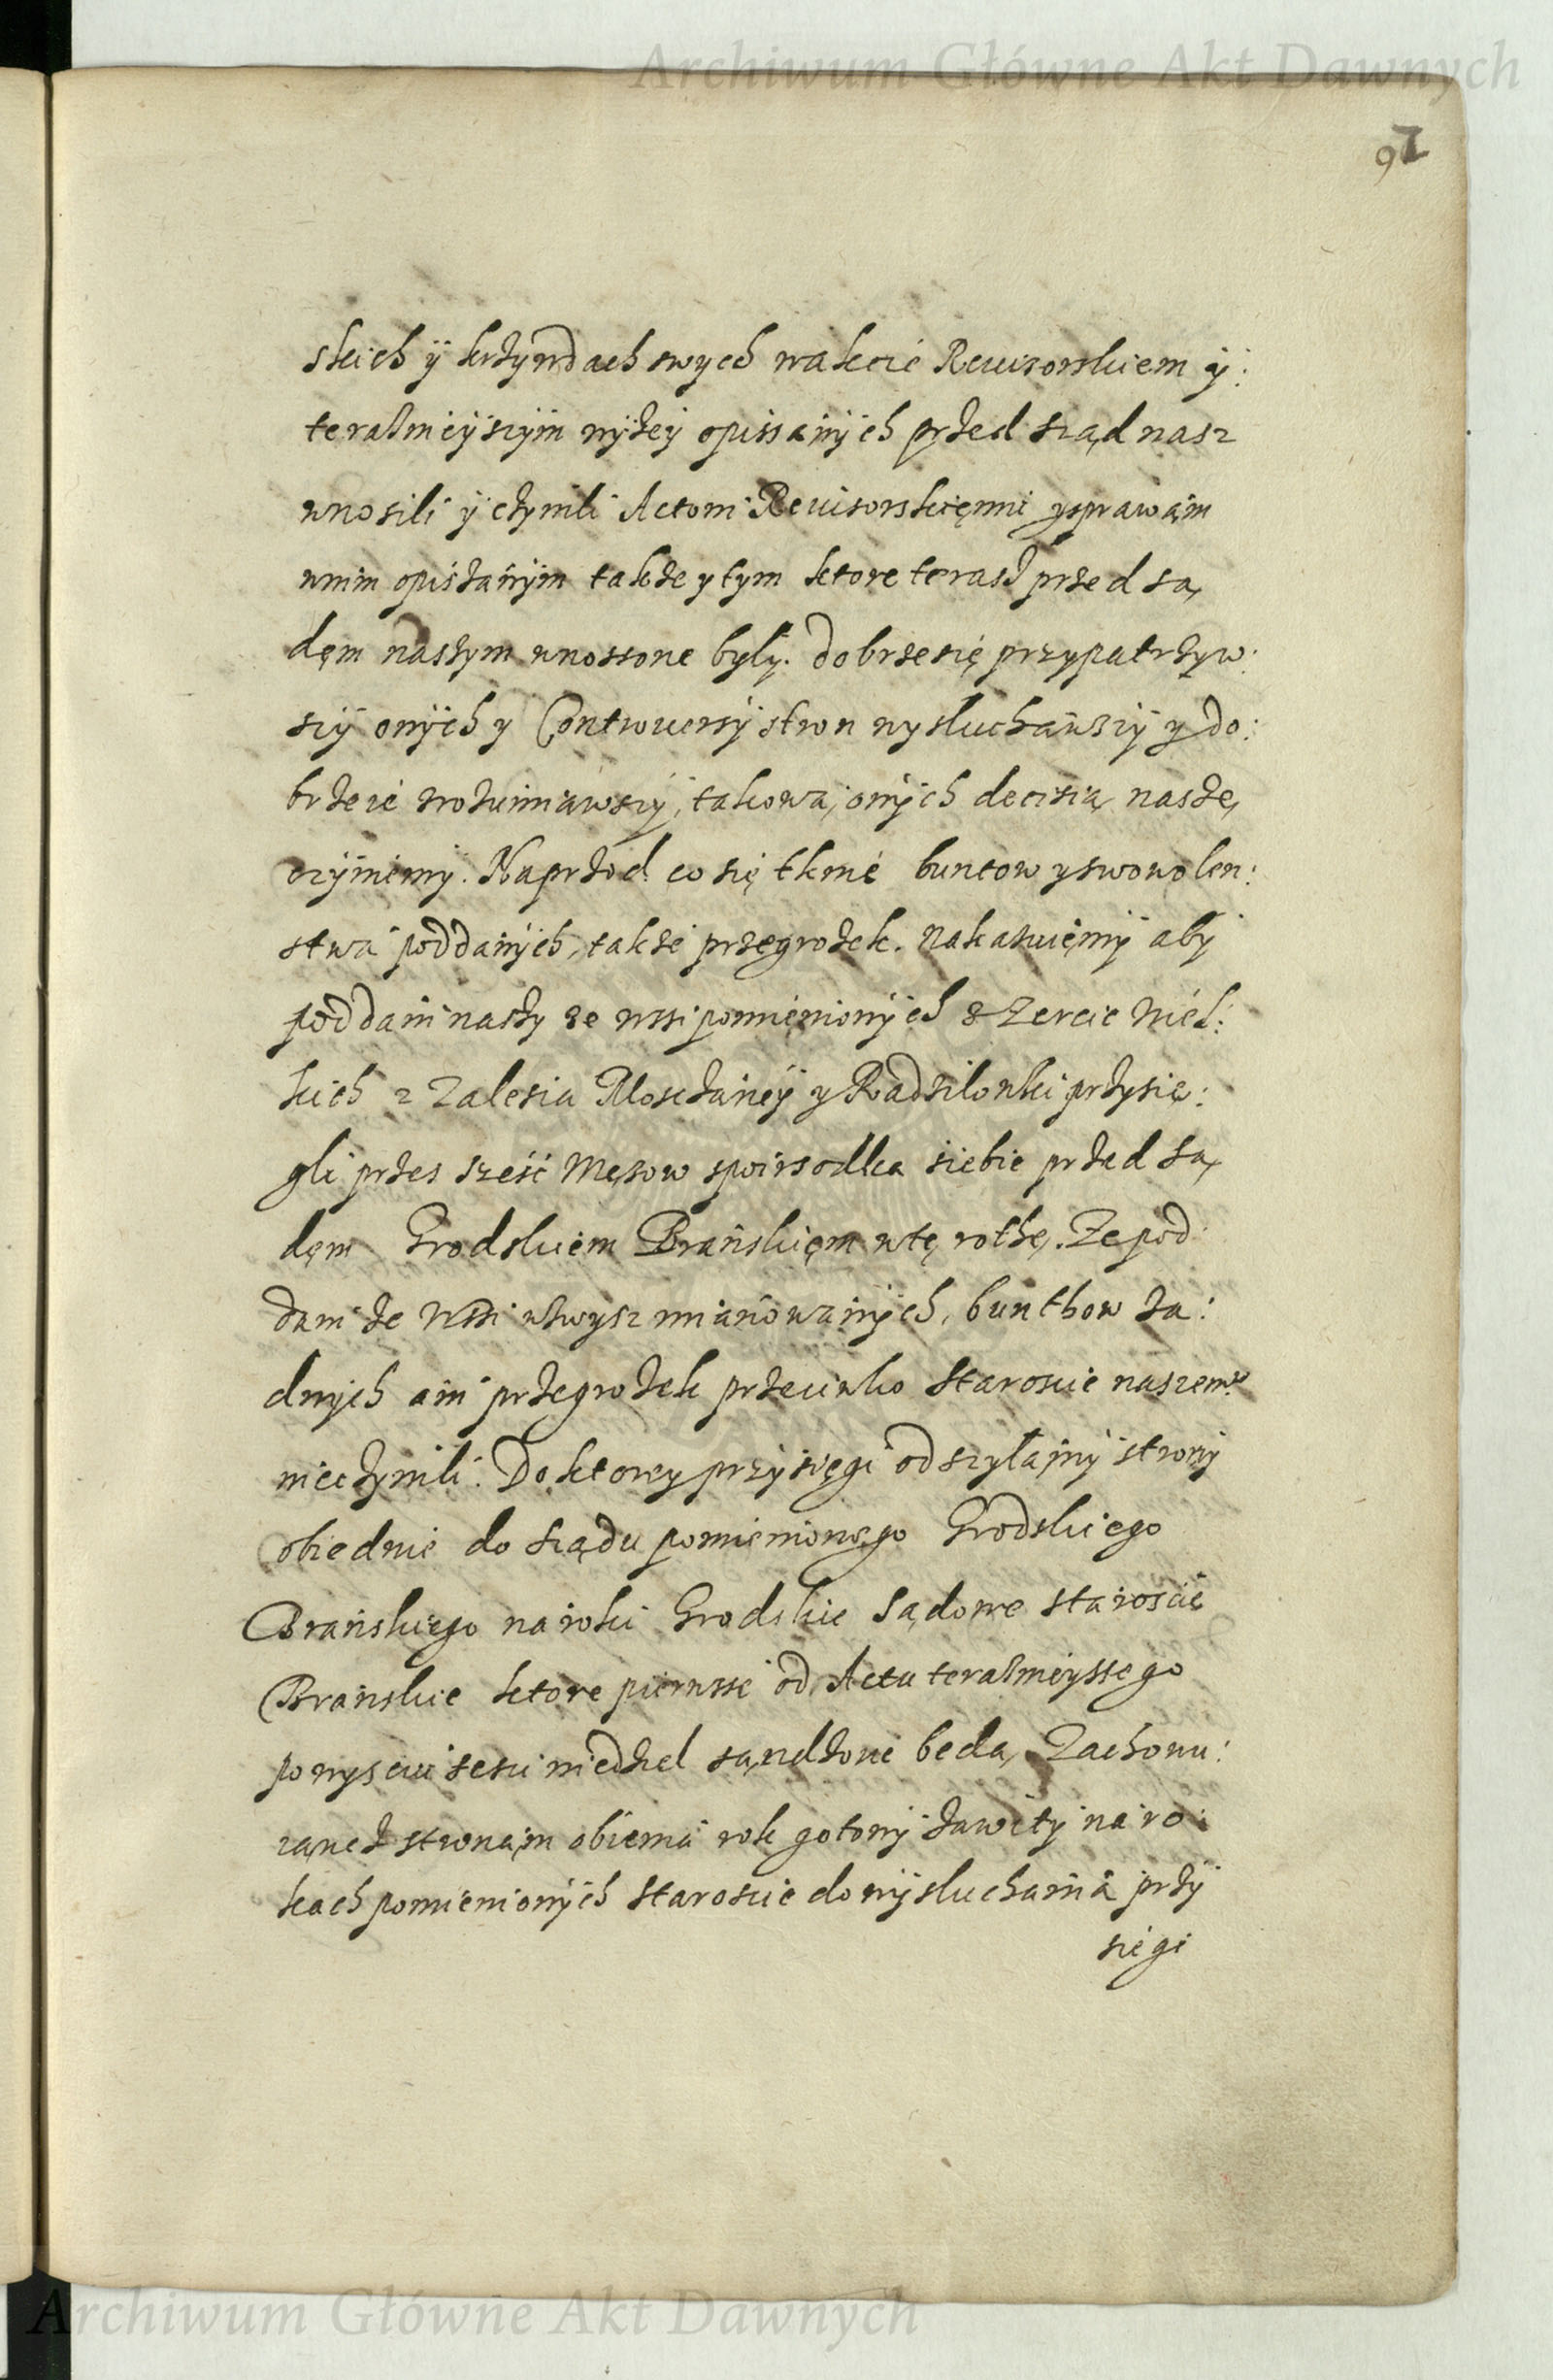 Archiwum Główne Akt Dawnych
91
skich ÿ krzÿwdach swych wakcie Reuisorskiem ÿ:
teraznieÿszÿm wÿzeÿ opissanÿch przed sząd nasz
wnosili ÿ czÿnili Actom Reuisorskięmu ysprawąm
wnim opiszanÿm takze y tym ktore terasz przed są
dęm naszym wnossone byłÿ. dobrze się przypatrzyw:
szÿ onÿch y Controuersÿ stron wysłuchawszÿ y do:
brze ie zrozumiawszÿ, takową onÿch decisią naszę
czÿniemÿ. Naprzod co się tknie buntow yswowolen:
stwa poddanÿch, takze przegrozek. nakazuięmÿ abÿ
poddani naszy ze wssi pomięnionÿch z Zercic Wiel:
kich z Zalesia Mosczaneÿ y Radzilowki przysię:
gli przes sześć Męzow spoirsodka siebie przed są
dęm Grodskiem Brańskięm wtę rothę. Ze pod
dani ze Wssi wzwysz mianowanÿch, bunthow za:
dnÿch ani przegrozek przeciwko Staroscie naszemu
nieczynili. Do ktorey przysięgi odszyłamy strony
obiedwie do sządu pomienionego Grodskiego
Brańskiego na roki Grodskie Sądowe staroscie
Branskie ktore pierwsse od Actu teraznieyssego
powysciu sesci niedziel sąndzone beda, Zachowu:
iącz stronąm obiema rok gotowÿ zawitÿ na ro:
kach pomienionÿch Staroscie do wÿsluchania przÿ
sięgi
Archiwum Główne Akt Dawnych